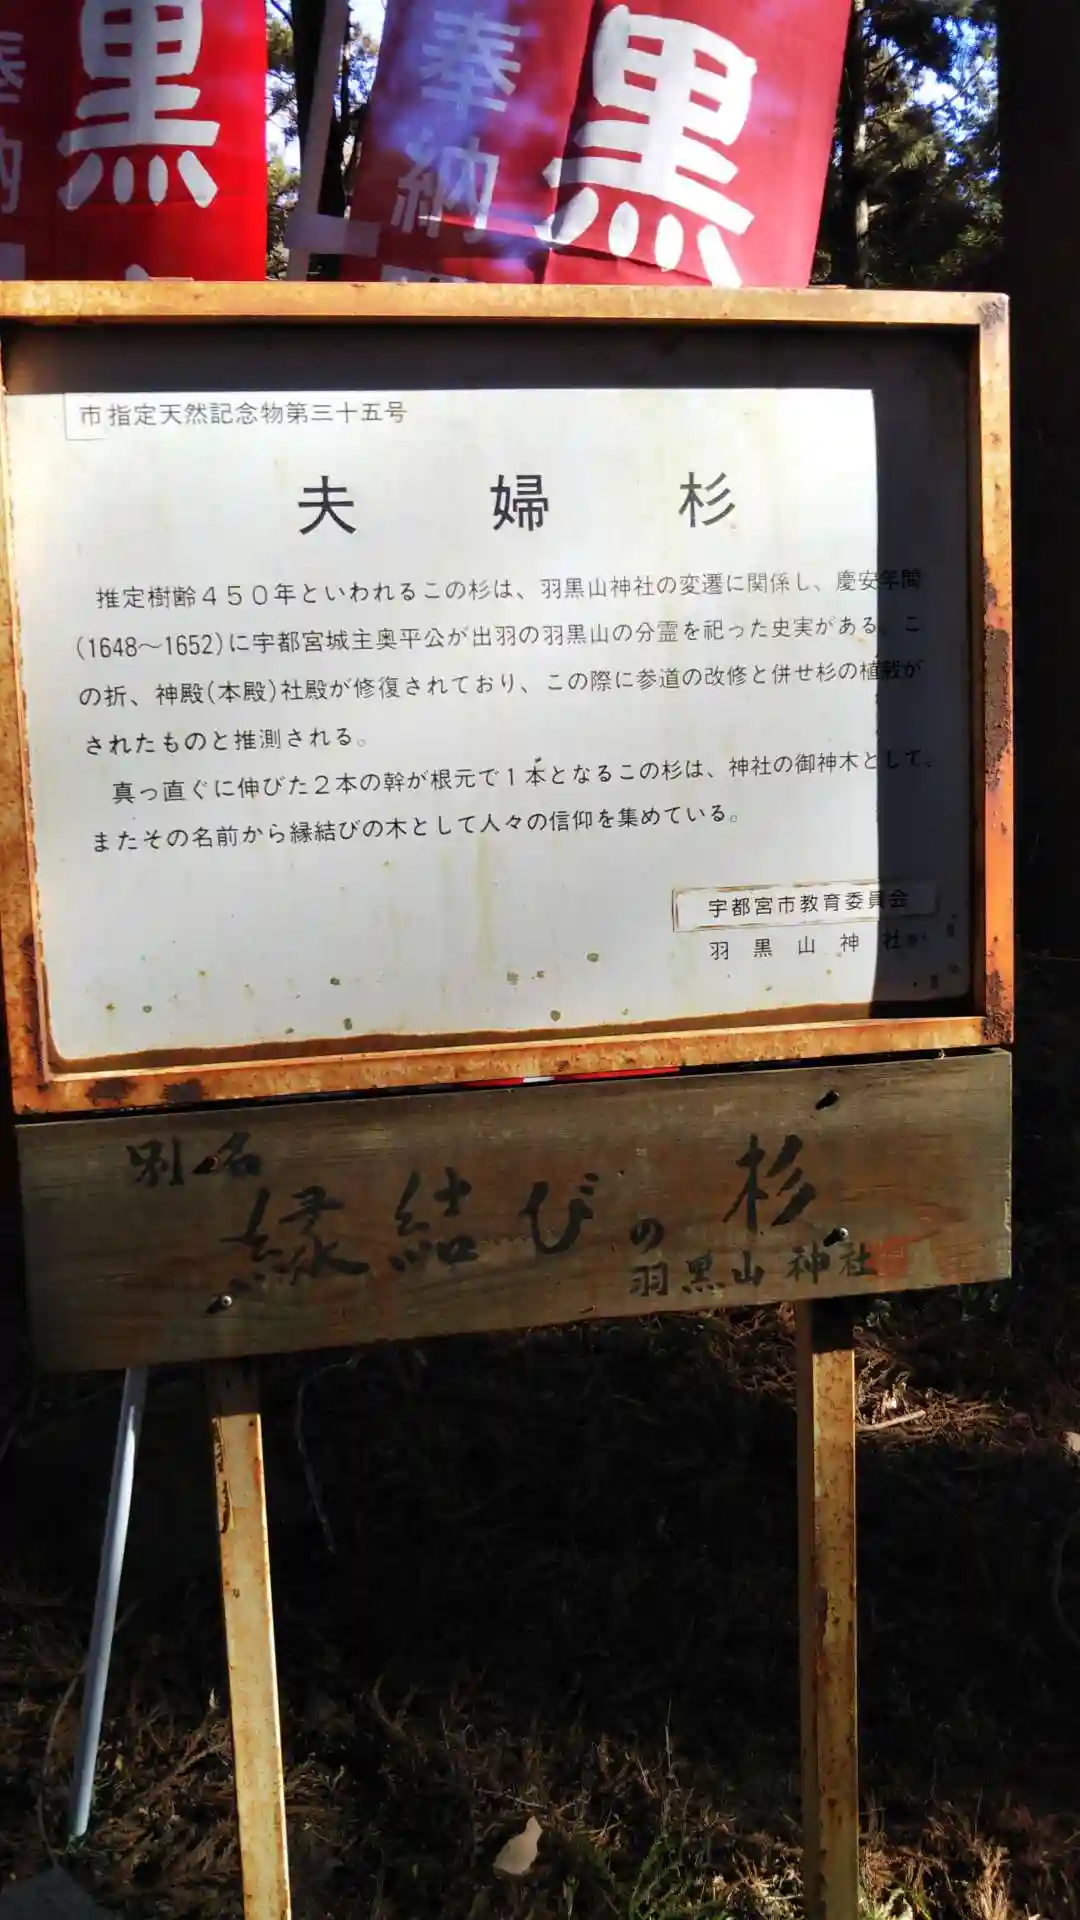 奉納
黒
奉納
黒
市指定天然記念物第三十五号
夫婦杉
推定樹齢４５０年といわれるこの杉は、羽黒山神社の変遷に関係し、慶安年間
(1648〜1652)に宇都宮城主奥平公が出羽の羽黒山の分霊を祀った史実がある。こ
の折、神殿(本殿)社殿が修復されており、この際に参道の改修と併せ杉の植栽が
されたものと推測される。
真っ直ぐに伸びた２本の幹が根元で１本となるこの杉は、神社の御神木として、
またその名前から縁結びの木として人々の信仰を集めている。
宇都宮市教育委員会
羽黒山神社
別名
縁結びの杉
羽黒山神社